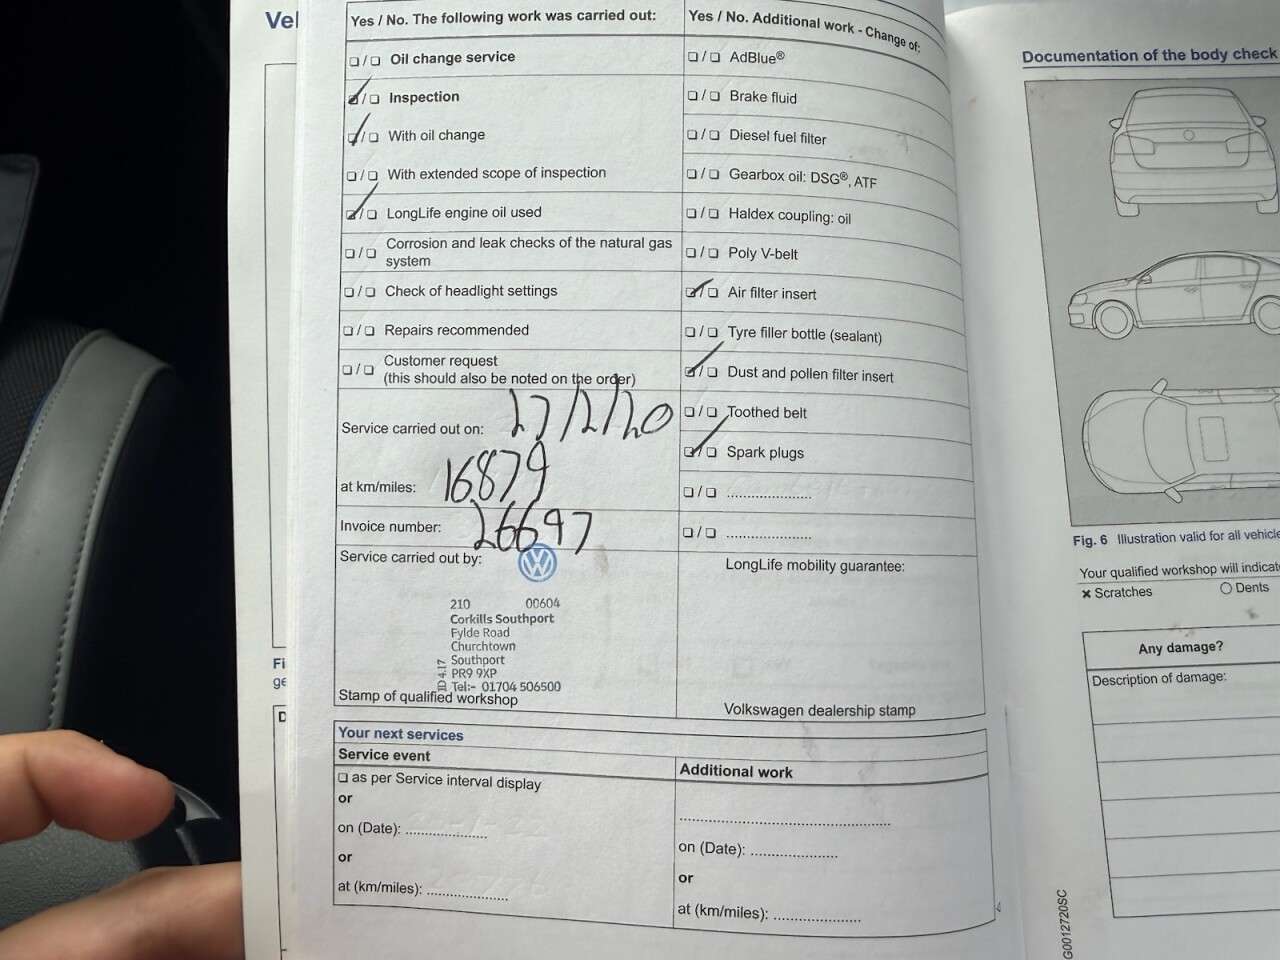 Vel
Yes / No. The following work was carried out:
❑ / ❑ Oil change service
❑ / ❑ Inspection
❑ / ❑ With oil change
❑ / ❑ With extended scope of inspection
❑ / ❑ LongLife engine oil used
❑ / ❑ Corrosion and leak checks of the natural gas
system
❑ / ❑ Check of headlight settings
❑ / ❑ Repairs recommended
❑ / ❑ Customer request
(this should also be noted on the order)
Service carried out on: 27/2/20
at km/miles: 16879
Invoice number: 26697
Service carried out by:
VW
210 00604
Corkills Southport
Fylde Road
Churchtown
Southport
PR9 9XP
Tel:- 01704 506500
ID 4.17
Stamp of qualified workshop
Yes / No. Additional work - Change of:
❑ / ❑ AdBlue®
❑ / ❑ Brake fluid
❑ / ❑ Diesel fuel filter
❑ / ❑ Gearbox oil: DSG®, ATF
❑ / ❑ Haldex coupling: oil
❑ / ❑ Poly V-belt
❑ / ❑ Air filter insert
❑ / ❑ Tyre filler bottle (sealant)
❑ / ❑ Dust and pollen filter insert
❑ / ❑ Toothed belt
❑ / ❑ Spark plugs
❑ / ❑ .....................
❑ / ❑ .....................
LongLife mobility guarantee:
Volkswagen dealership stamp
Your next services
Service event
❑ as per Service interval display
or
on (Date): ....................
or
at (km/miles): ....................
Additional work
..........................................
on (Date): .....................
or
at (km/miles): .....................
Fi
ge
D
Documentation of the body check
Fig. 6 Illustration valid for all vehicle
Your qualified workshop will indicat
× Scratches ○ Dents
Any damage?
Description of damage:
G0012720SC